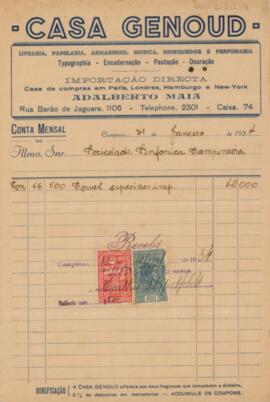 CASA GENOUD
LIVRARIA, PAPELARIA, ARMARINHO, MUSICA, BRINQUEDOS E PERFUMARIA
Typographia - Encadernação - Pautação - Douração
IMPORTAÇÃO DIRECTA
Casa de compras em Paris, Londres, Hamburgo e New-York
ADALBERTO MAIA
Rua Barão de Jaguara, 1106 - Telephone, 2301 - Caixa, 74
CONTA MENSAL
Campinas, 31 de Janeiro de 1934
Illmo. Snr. Sociedade Sinfonica Campineira
500 especiaes imp.
Recebi
Campinas,
MAIA
BONIFICAÇÃO
A CASA GENOUD offerece aos seus freguezes que comprarem a dinheiro,
de descontos em mercadorias - ACCUMULE OS COUPONS.